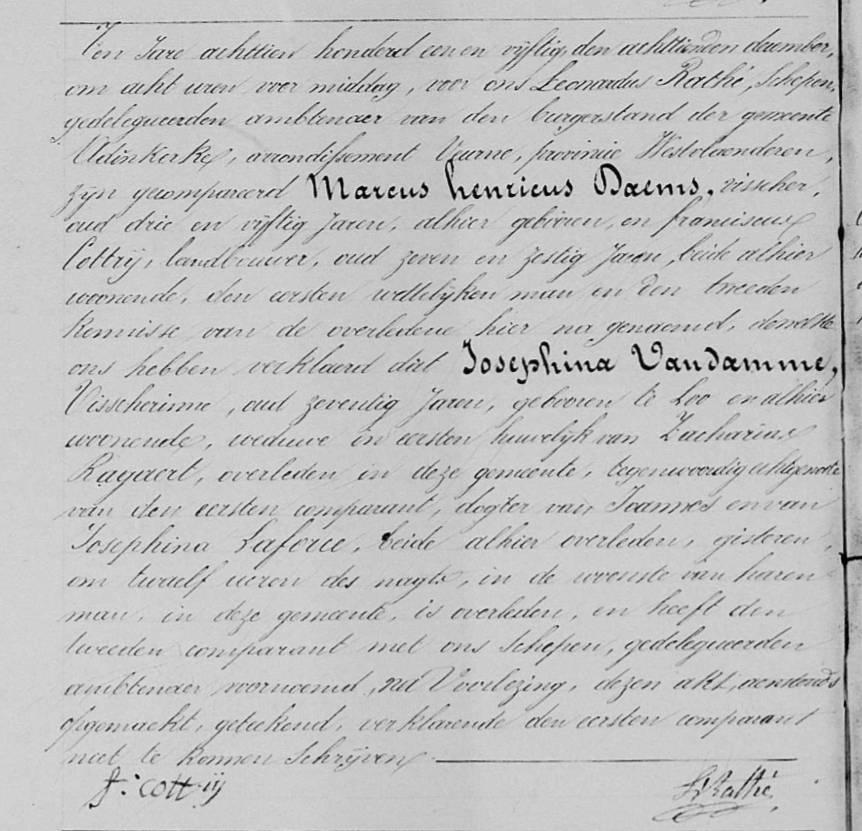 Ten Jare achttien honderd een en vijftig, den achttienden december,
om acht uren voor middag, voor ons Leonardus Rathé, Schepen,
gedelegueerden ambtenaer van den burgerstand der gemeente
Adinkerke, arrondissement Veurne, provincie Westvlaenderen,
zijn gecompareerd Marcus henricus Daems, visscher,
oud drie en vijftig Jaren, alhier geboren, en franciscus
Cottrij, landbouwer, oud zeven en zestig Jaren, beide alhier
woonende, den eersten wettelyken man en den tweeden
kennisse van de overledene hier na genoemd, dewelke
ons hebben verklaerd dat Josephina Vandamme,
Visscherinne, oud zeventig Jaren, gebooren te Loo en alhier
woonende, weduwe in eersten huwelijk van Zacharias
Rayaert, overleden in deze gemeente, tegenwoordig echtgenote
van den eersten comparant, dogter van Joannes en van
Josephina Laforce, beide alhier overleden, gisteren,
om twaelf uren des nagts, in de woonste van haren
man, in deze gemeente, is overleden, en heeft den
tweeden comparant met ons Schepen, gedelegueerden
ambtenaer voornoemd, na Voorlezing, dezen akt, aenstonds
opgemaekt, geteekend, verklarende den eersten comparant
niet te konnen Schrijven
f: cottrij
L Rathé